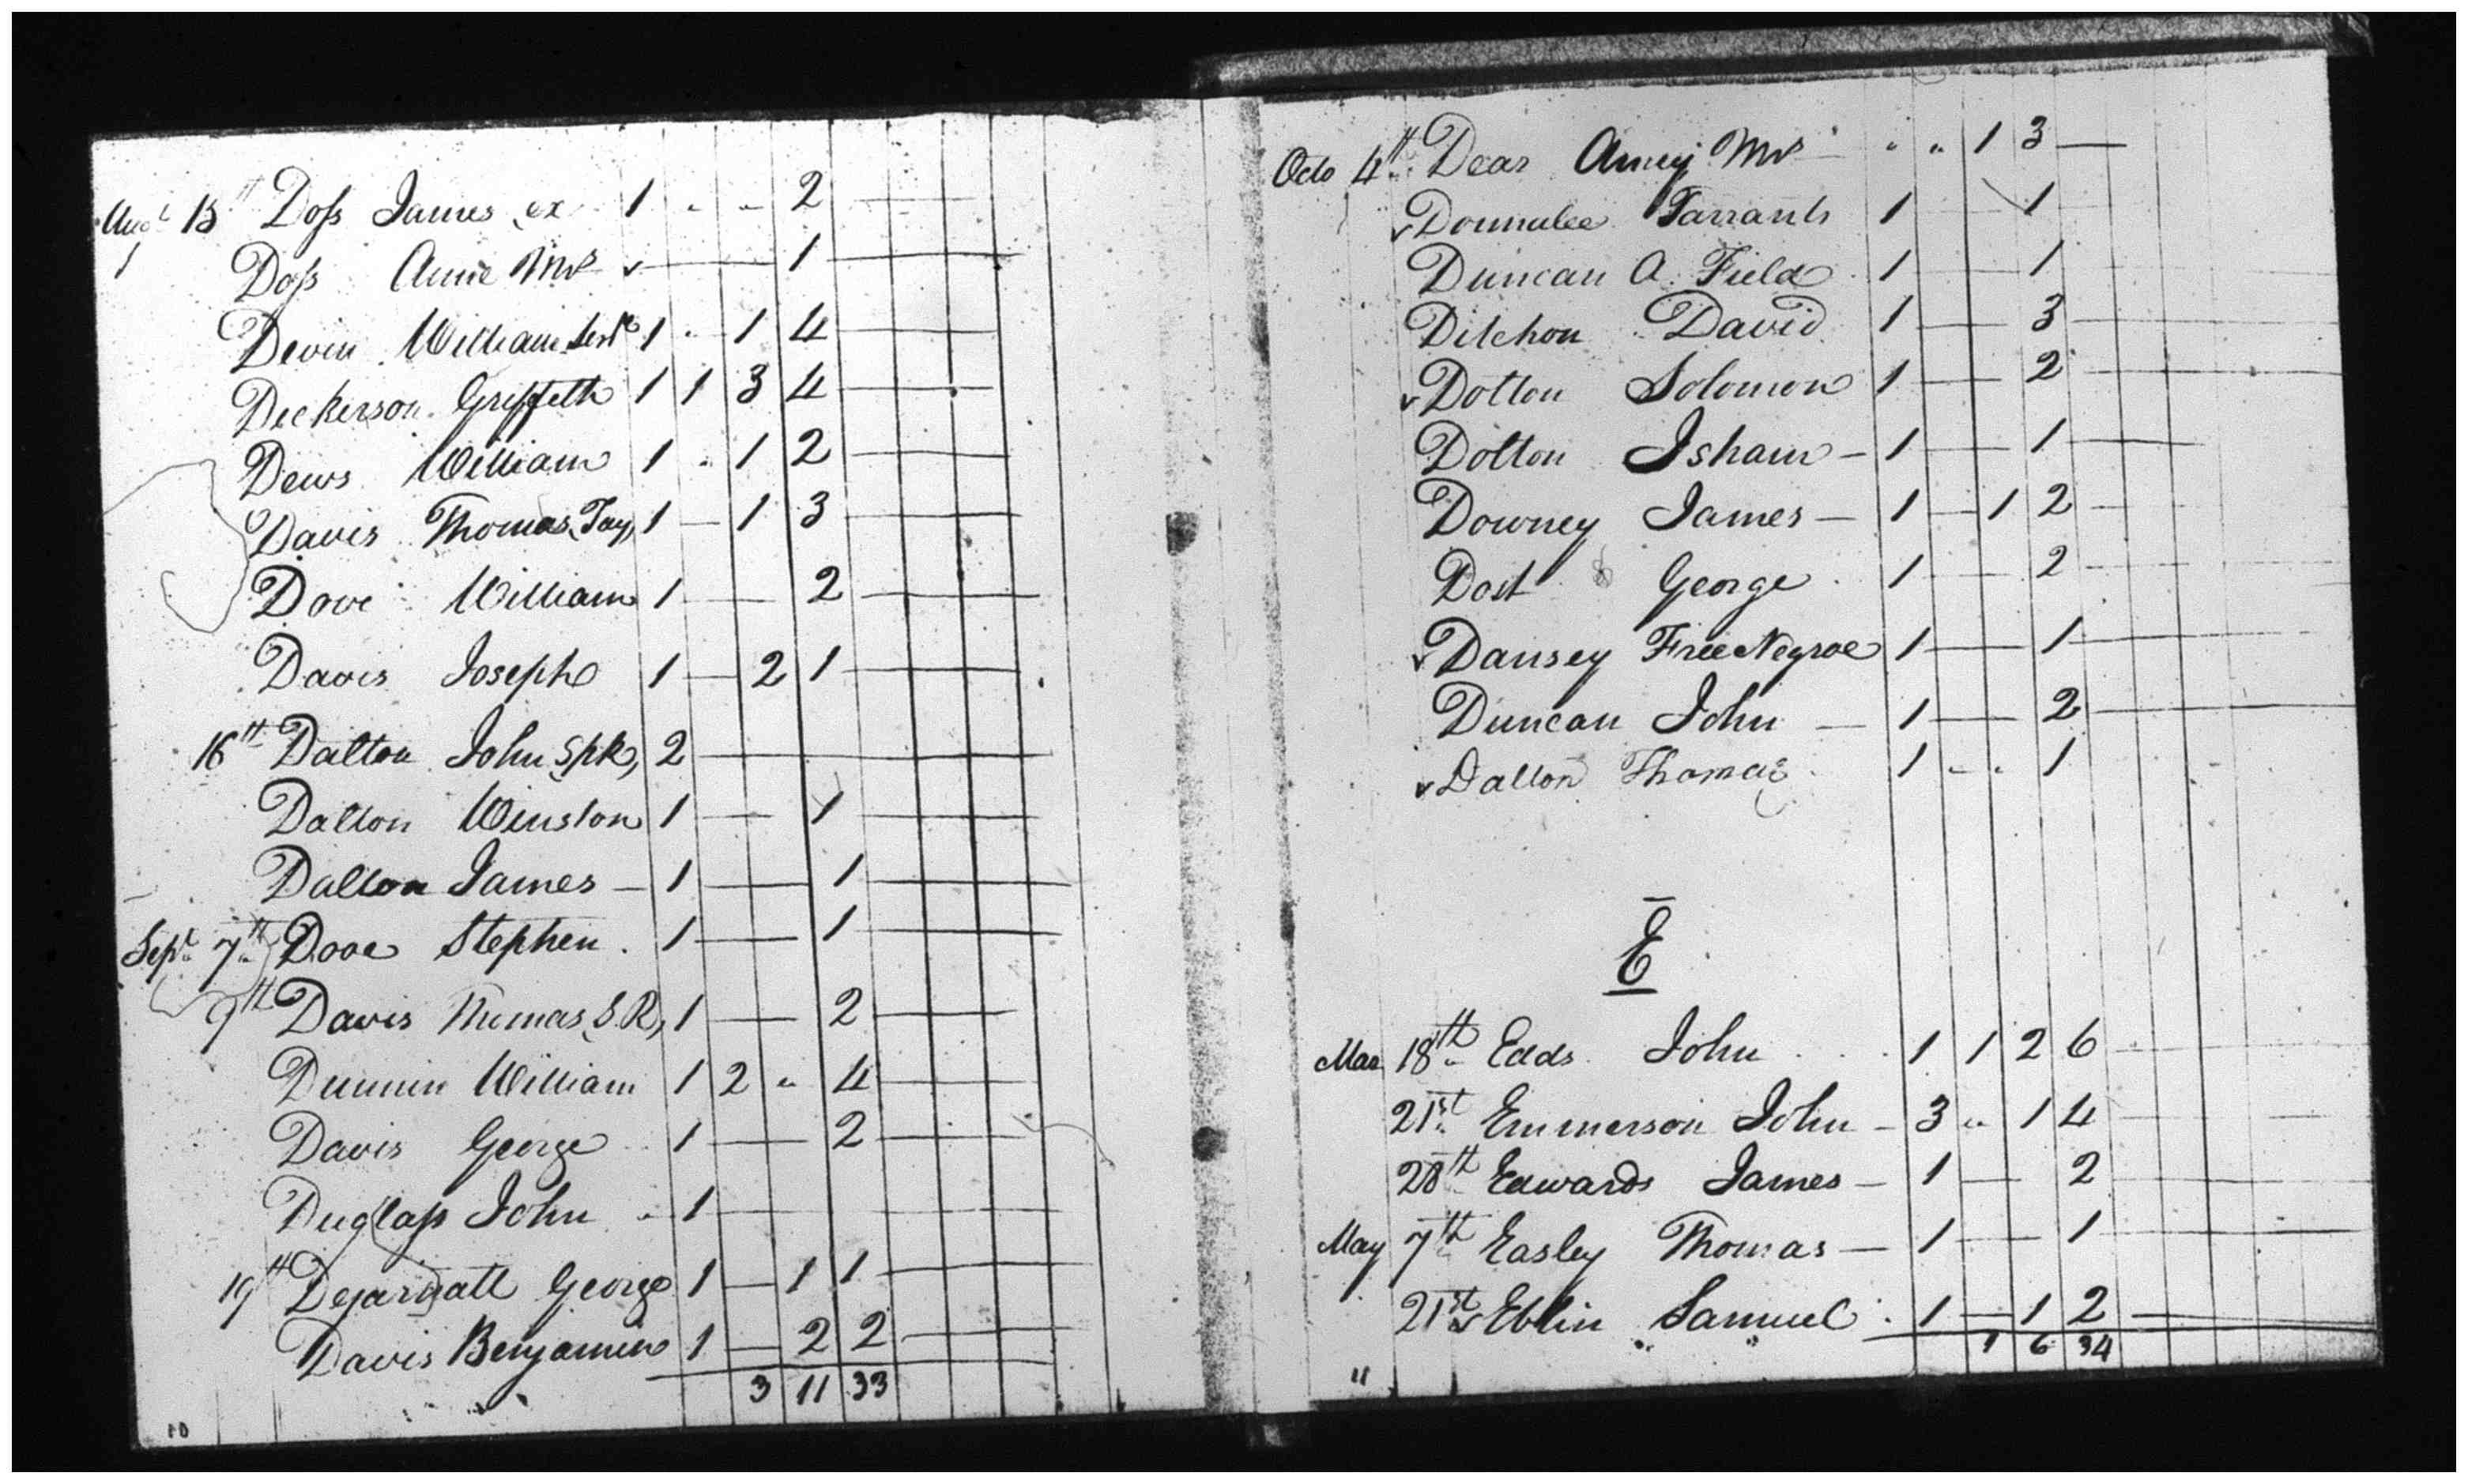 Augt 15th Doss James, ex 1 " " 2 —
1 Doss Anne Mrs — 1 —
Devin William 1 " 1 4 —
Deckerson Griffeth 1 1 3 4 —
Dews William 1 " 1 2 —
Davis Thomas, Tay, 1 — 1 3 —
Dove William 1 — 2 —
Davis Joseph 1 — 2 1 —
16th Dalton John, Spk, 2 —
Dalton Winston 1 — 1 —
Dalton James — 1 — 1 —
Sept. 7th Dove Stephen 1 — 1 —
9th Davis Thomas, S.R, 1 — 2 —
Dunnin William 1 2 " 4 —
Davis George 1 — 2 —
Duglass John 1 —
19th Dejarnatt George 1 — 1 1 —
Davis Benjamin 1 — 2 2 —
3 11 33
10
Octo 4th Dear Amey Mrs " " 1 3 —
Donnalee Tarrants 1 — 1
Duncan A. Field 1 — 1
Ditchon David 1 — 3 —
Dolton Solomon 1 — 2 —
Dolton Isham — 1 — 1 —
Downey James — 1 — 1 2 —
Dost George 1 — 2 —
Dansey Free Negroe 1 — 1 —
Duncan John — 1 — 2 —
Dalton Thomas 1 " " 1
E
Mar 18th Edds John 1 1 2 6 —
21st Emmerson John — 3 " 1 4 —
28th Edwards James — 1 — 2 —
May 7th Easley Thomas — 1 — 1 —
21st Eblin Samuel 1 — 1 2 —
1 6 34
11